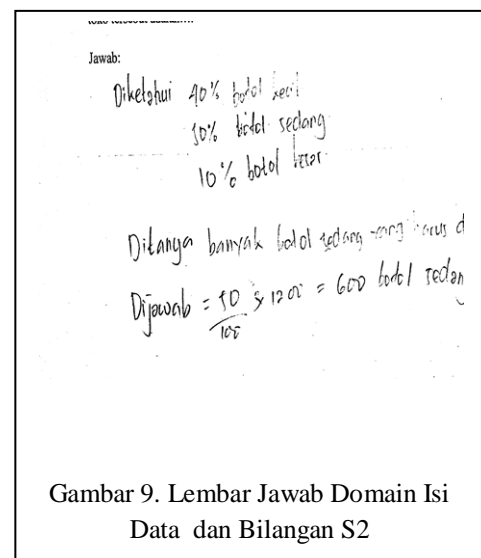 Jawab:
Diketahui 40% botol kecil
50% botol sedang
10% botol besar
Ditanya banyak botol sedang yang harus d
Dijawab = 50/100 x 1200 = 600 botol sedan
Gambar 9. Lembar Jawab Domain Isi
Data dan Bilangan S2